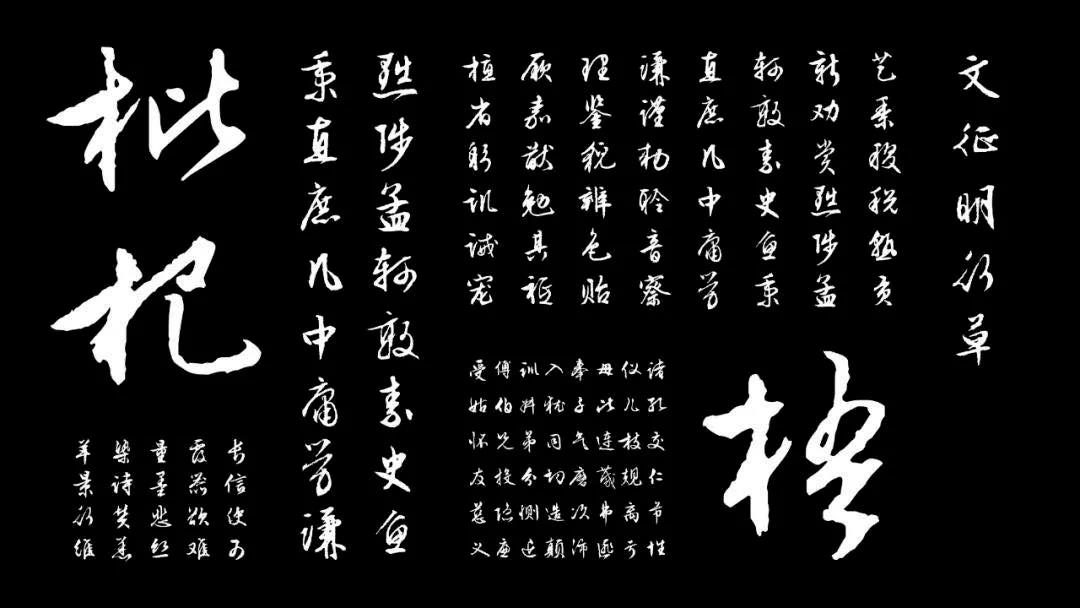 文征明行草
艺黍稷税熟贡
新劝赏黜陟孟
轲敦素史鱼秉
直庶几中庸劳
谦谨敕聆音察
理鉴貌辨色贻
厥嘉猷勉其祗
植省躬讥诫宠
梧
受傅训入奉母仪诸
姑伯叔犹子比儿孔
怀兄弟同气连枝交
友投分切磨箴规仁
慈隐恻造次弗离节
义廉退颠沛匪亏性
黜陟孟轲敦素史鱼
秉直庶几中庸劳谦
枇杷
长信使可
覆器欲难
量墨悲丝
染诗赞羔
羊景行维